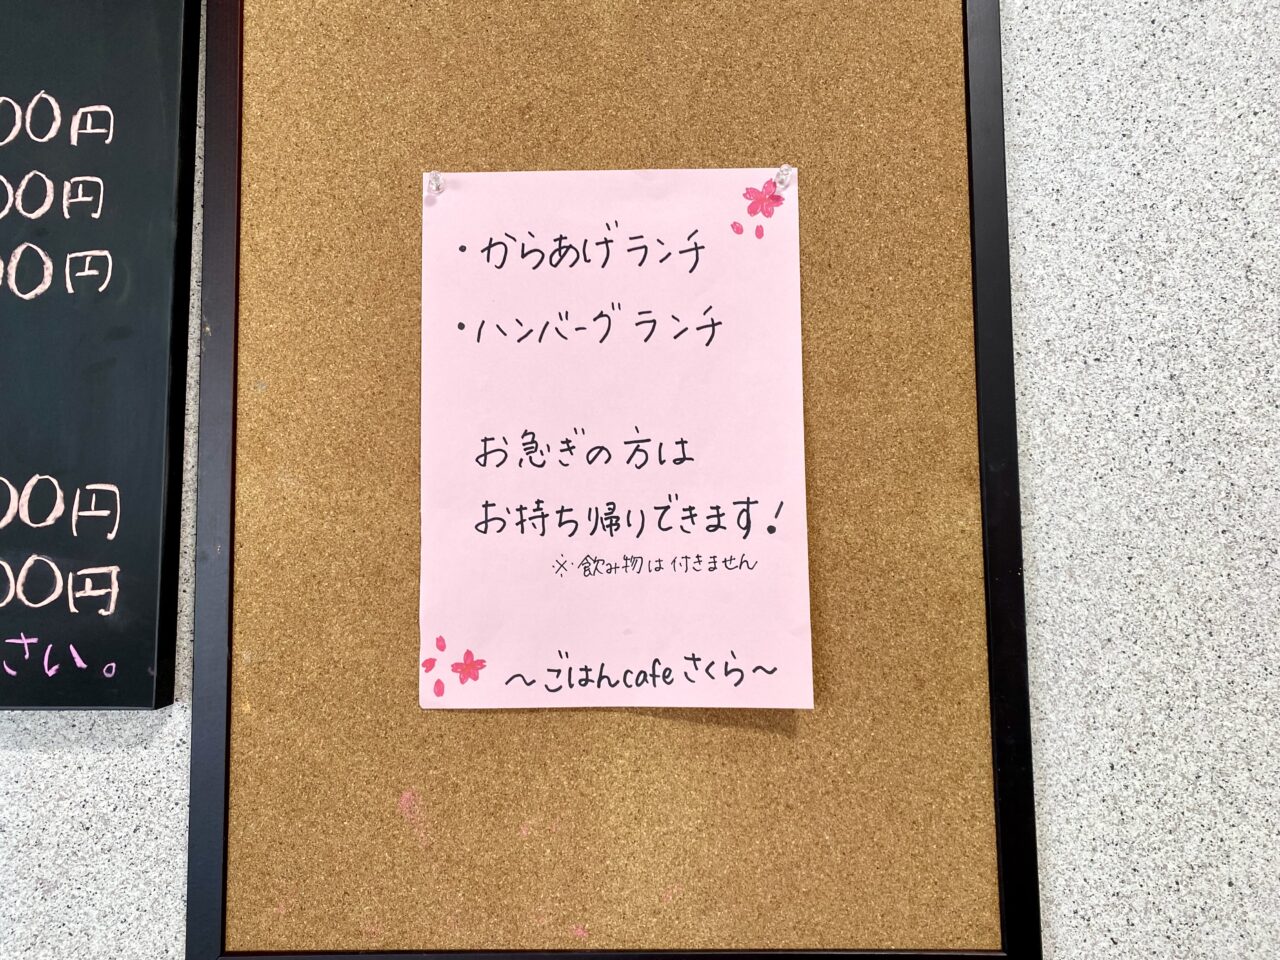 00円
00円
00円
00円
00円
さい。
・からあげランチ
・ハンバーグランチ
お急ぎの方は
お持ち帰りできます!
※飲み物は付きません
～ごはんcafeさくら～